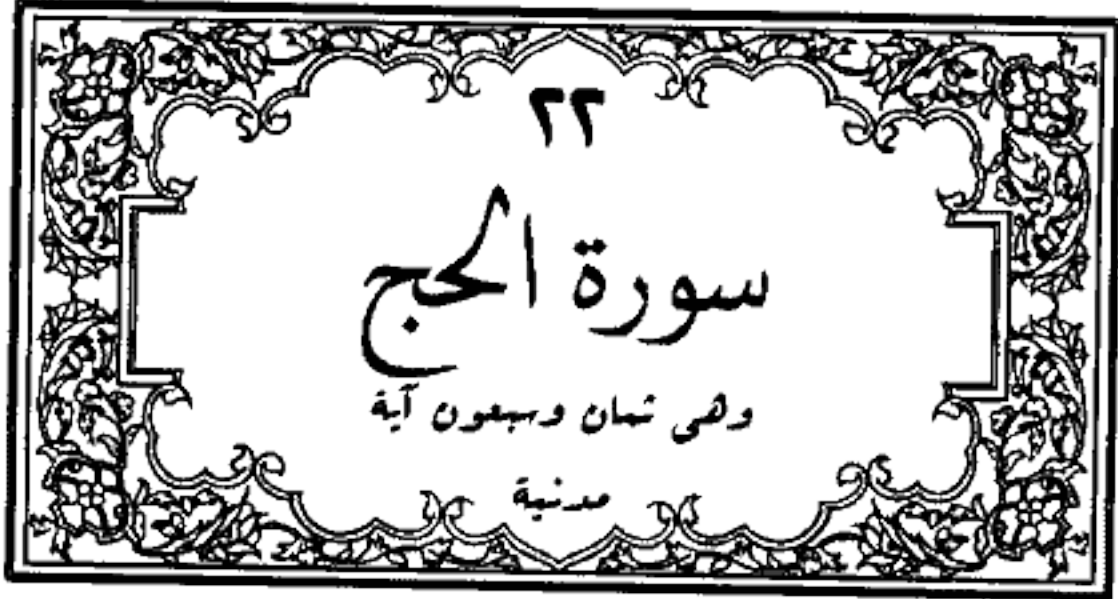 ٢٢
سورة الحج
وهى ثمان وسبعون آية
مدنية